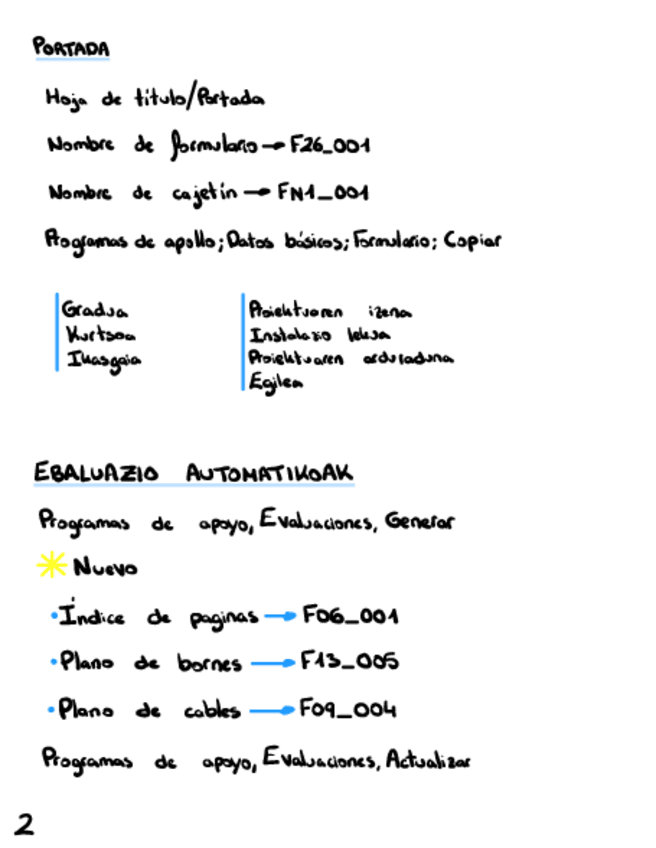 PORTADA
Hoja de título/Portada
Nombre de formulario → F26_001
Nombre de cajetín → FN1_001
Programas de apollo; Datos básicos; Formulario; Copiar
Gradua
Kurtsoa
Ikasgaia
Proiektuaren izena
Instalazio lekua
Proiektuaren arduraduna
Egilea
EBALUAZIO AUTOMATIKOAK
Programas de apoyo, Evaluaciones, Generar
Nuevo
• Índice de paginas → F06_001
• Plano de bornes → F13_005
• Plano de cables → F09_004
Programas de apoyo, Evaluaciones, Actualizar
2